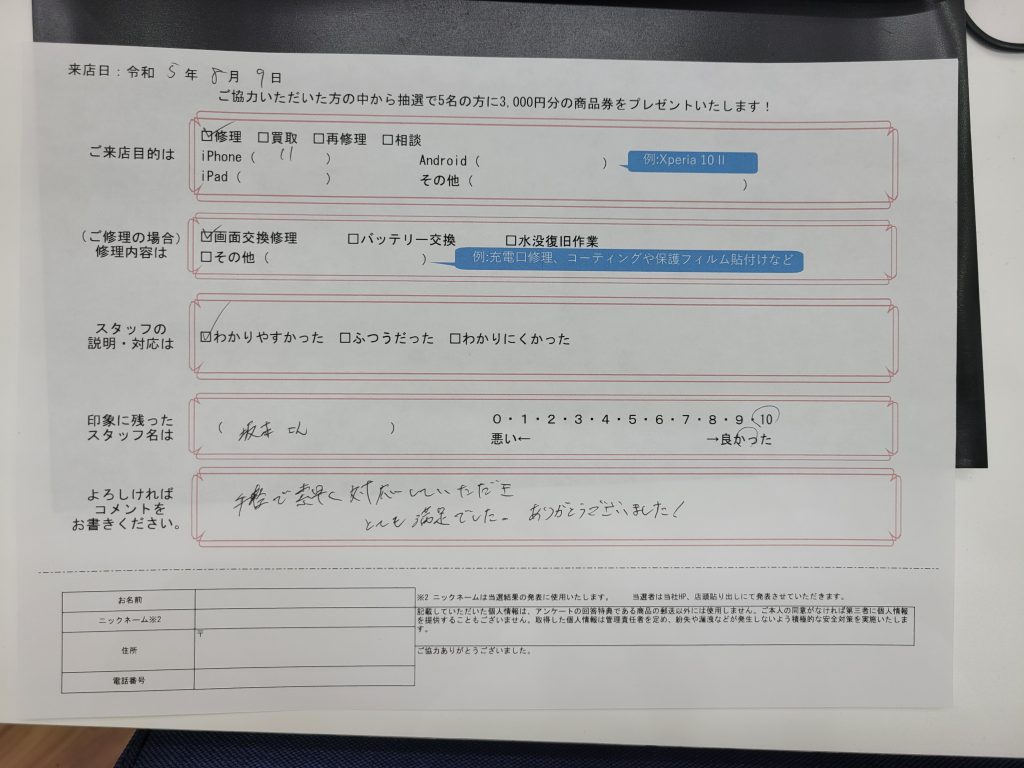 来店日：令和 5 年 8 月 9 日
ご協力いただいた方の中から抽選で5名の方に3,000円分の商品券をプレゼントいたします！
ご来店目的は
☑修理 □買取 □再修理 □相談
iPhone（ 11 ） Android（ ） 例:Xperia 10 II
iPad（ ） その他（ ）
（ご修理の場合）
修理内容は
☑画面交換修理 □バッテリー交換 □水没復旧作業
□その他（ ） 例:充電口修理、コーティングや保護フィルム貼付けなど
スタッフの
説明・対応は
☑わかりやすかった □ふつうだった □わかりにくかった
印象に残った
スタッフ名は
（ 坂本 さん ）
0・1・2・3・4・5・6・7・8・9・10
悪い← →良かった
よろしければ
コメントを
お書きください。
手軽で素早く対応していただき
とても満足でした。ありがとうございました！
お名前
ニックネーム※2
住所
〒
電話番号
※2 ニックネームは当選結果の発表に使用いたします。 当選者は当社HP、店頭貼り出しにて発表させていただきます。
記載していただいた個人情報は、アンケートの回答特典である商品の郵送以外には使用しません。ご本人の同意がなければ第三者に個人情報
を提供することもございません。取得した個人情報は管理責任者を定め、紛失や漏洩などが発生しないよう積極的な安全対策を実施いたしま
す。
ご協力ありがとうございました。